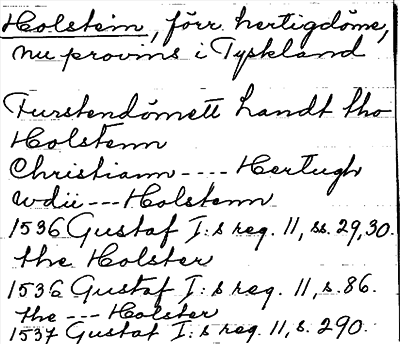 Holstein, förr. hertigdöme,
nu provins i Tyskland
Furstendömett handt tho
Holstenn
Christiann ---- Hertugh
wdii --- Holstenn
1536 Gustaf I:s reg. 11, ss. 29,30.
the Holster
1536 Gustaf I:s reg. 11, s. 86.
the --- Holster
1537 Gustaf I:s reg. 11, s. 290.